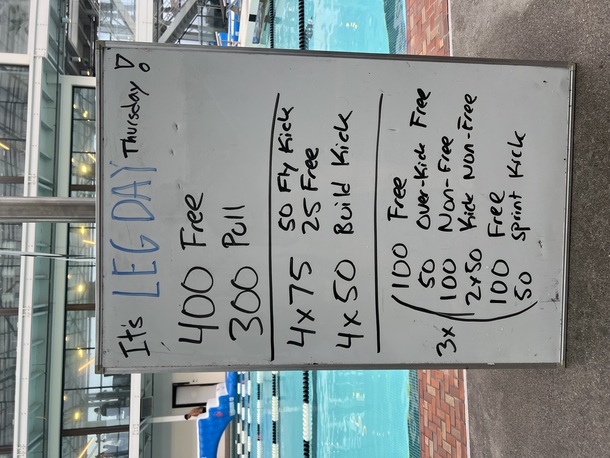 It's LEG DAY Thursday!
400 Free
300 Pull
4x75 50 Fly Kick
25 Free
4x50 Build Kick
100 Free
50 Over-Kick Free
3x 100 Non-Free
2x50 Kick Non-Free
100 Free
50 sprint Kick